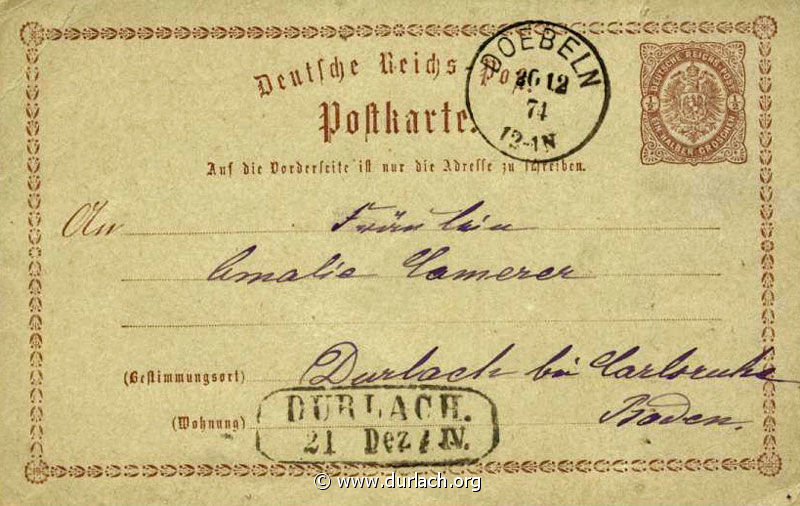 DOEBELN
20 12
74
12-1N
DEUTSCHE REICHS-POST
½ ½
EIN HALBER GROSCHEN
Deutsche Reichs-Post.
Postkarte.
Auf die Vorderseite ist nur die Adresse zu schreiben.
An Fräulein
Amalie Camerer
(Bestimmungsort) Durlach bei Carlsruhe
(Wohnung) Baden.
DURLACH.
21 Dez / IV.
© www.durlach.org